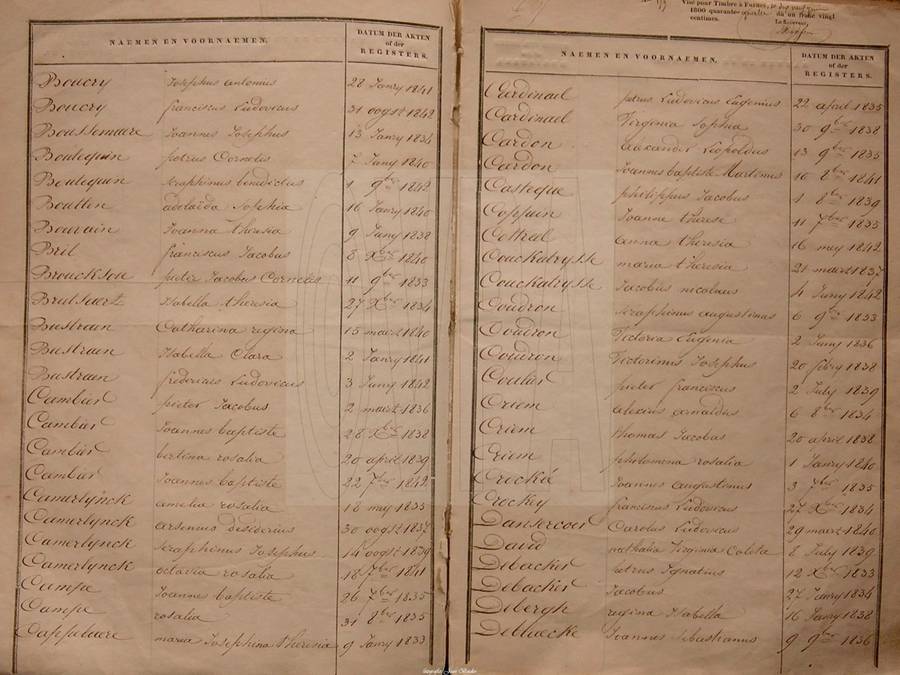 NAEMEN EN VOORNAEMEN.
DATUM DER AKTEN
of der
REGISTERS.
Boucry Josephus antonius 28 Janry 1841
Boucry franciscus Ludovicus 31 oogst 1842
Boussemaere Joannes Josephus 13 Janry 1834
Boutequin petrus Cornelis 7 Juny 1840
Boutequin seraphinus benedictus 1 9bre 1842
Boutten adelaida Sophia 16 Janry 1840
Bouvain Joanna theresia 9 Juny 1838
Bril franciscus Jacobus 8 Xbre 1840
Brouckson pieter Jacobus Cornelis 11 9bre 1833
Brutsaert Isabella theresia 27 Xbre 1834
Bustraen Catharina regina 15 maert 1840
Bustraen Isabella Clara 2 Janry 1841
Bustraen fredericus Ludovicus 3 Juny 1842
Cambier pieter Jacobus 2 maert 1836
Cambier Joannes baptiste 28 Xbre 1838
Cambier bertina rosalia 20 april 1839
Cambier Joannes baptiste 22 7bre 1842
Camerlynck amelia rosalia 18 mey 1835
Camerlynck arsenius disiderius 30 oogst 1837
Camerlynck seraphinus Josephus 14 oogst 1839
Camerlynck octavia rosalia 18 7bre 1841
Campe Joanne baptiste 26 7bre 1835
Campe rosalia 31 8bre 1835
Cappelaere maria Josephina theresia 9 Janry 1833
Visé pour Timbre à Furnes,
1800 quarante
centimes.
du franc vingt
Le Receveur,
NAEMEN EN VOORNAEMEN.
DATUM DER AKTEN
of der
REGISTERS.
Cardinael petrus Ludovicus Eugenius 22 april 1835
Cardinael Virginia Sophia 30 9bre 1838
Cardon alexander Liopoldus 13 9bre 1835
Cardon Joannes baptiste Martinus 10 8bre 1841
Casteque philippus Jacobus 1 8bre 1839
Coppein Joanne therese 11 7bre 1835
Cottrel anna theresia 16 mey 1842
Couckuyt maria theresia 21 maert 1837
Jacobus nicolaus 4 Juny 1842
Coudron seraphinus augustinus 6 9bre 1833
Coudron Victoria Eugenia 2 Juny 1836
Coudron Victorinus Josephus 20 febry 1838
Coulier pieter franciscus 2 July 1839
Criem alexius arnoldus 6 8bre 1834
Criem thomas Jacobus 20 april 1838
Criem philomena rosalia 1 Janry 1840
Crocké Joannes augustinus 3 7bre 1835
Crockey franciscus Ludovicus 27 Xbre 1834
Dansercoer Carolus Ludovicus 29 maert 1840
David nathalia Virginia Coleta 8 July 1839
Debacker petrus Ignatius 12 Xbre 1833
Debacker Jacobus 27 Janry 1834
Debergh regina Isabella 16 Janry 1838
Deblaecke Joannes Sebastianus 9 9bre 1836